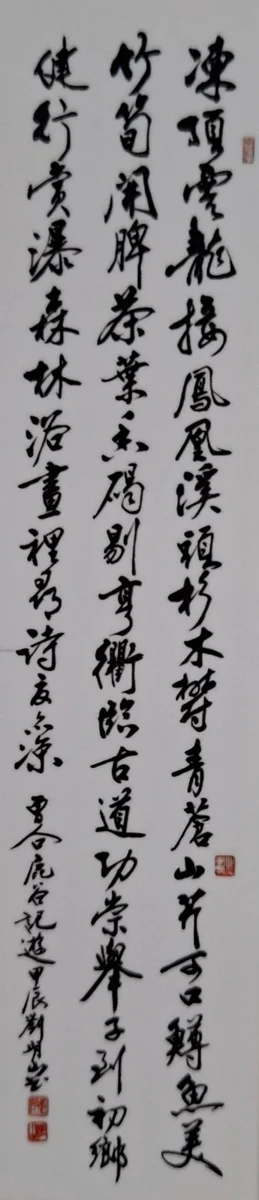 凍頂雲龍接鳳凰溪頭杉木鬱青蒼山芹可口鱒魚美
竹筍開脾茶葉香碣剔亨衢臨古道功崇舉子到初鄉
健行賞瀑森林浴畫裡尋詩夏亦涼
曹公鹿谷記遊甲辰劉